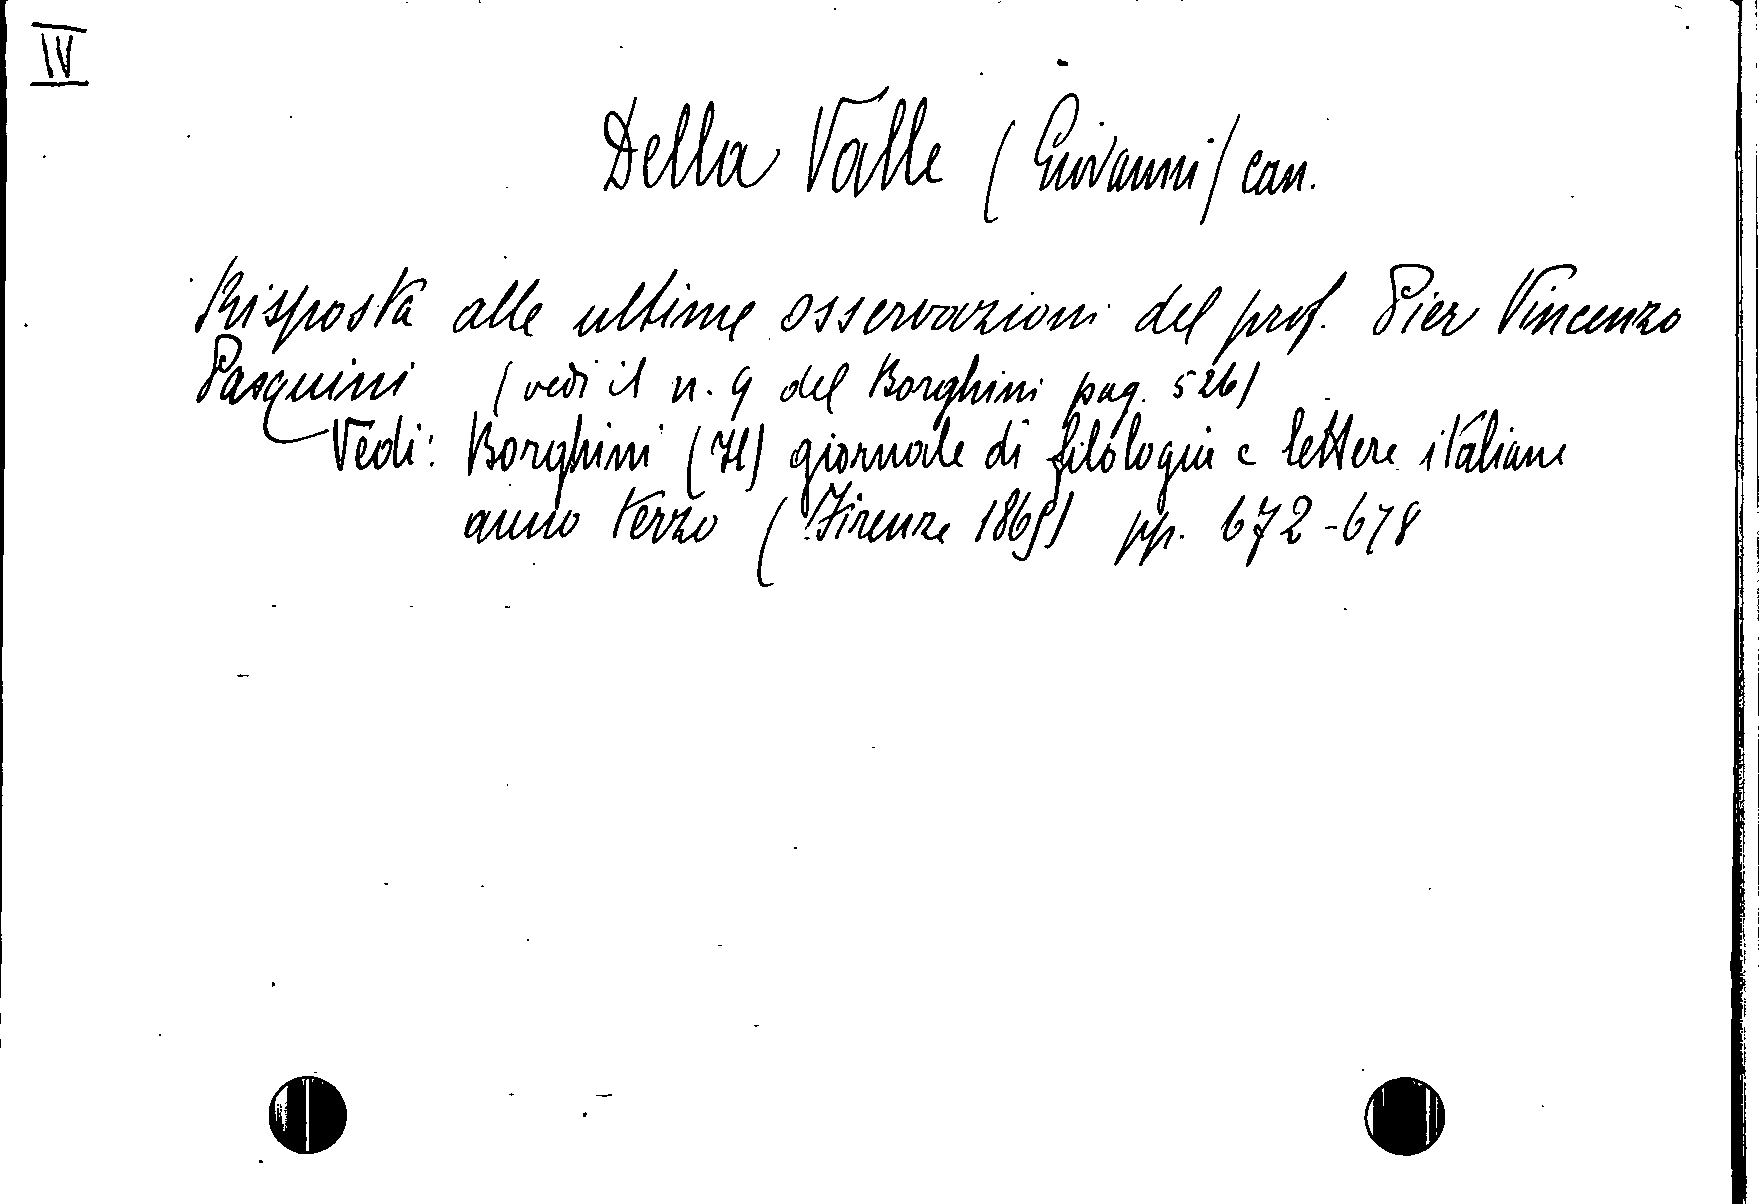 IV
Della Valle (Giovanni) can.
Risposta alle ultime osservazioni del prof. Pier Vincenzo
Pasquini (vedi il n. 9 del Borghini pag. 526)
Vedi: Borghini (Il) giornale di filologia e lettere italiane
anno terzo (Firenze 1865) pp. 672-678